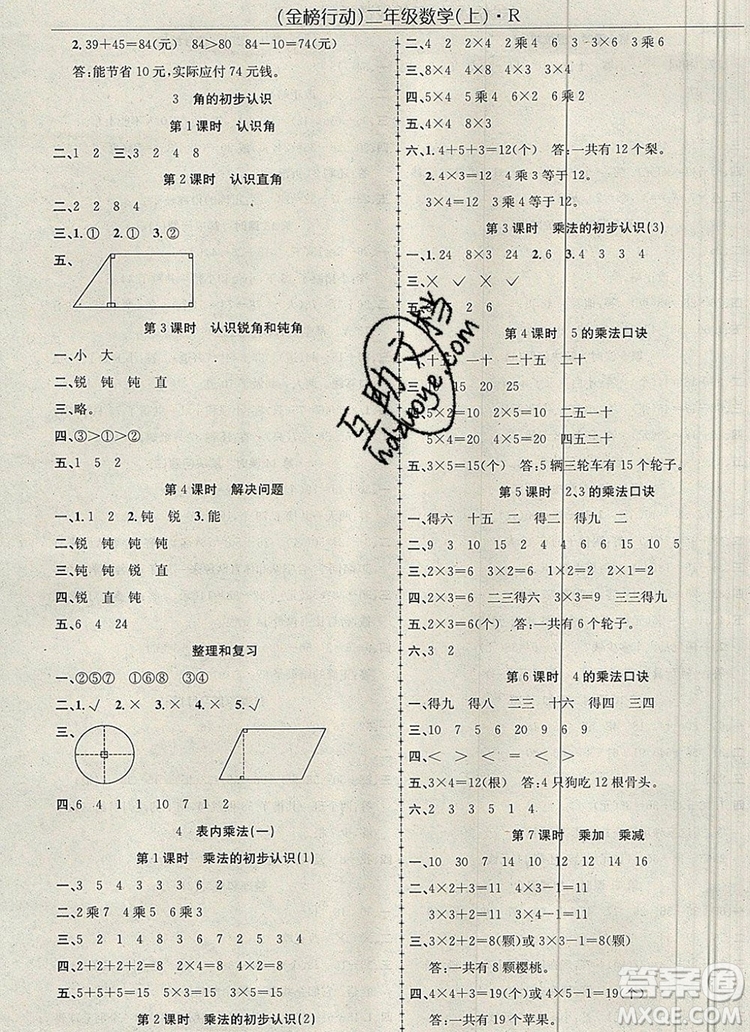 (金榜行动)二年级数学(上)·R
2.39+45=84(元) 84>80 84-10=74(元)
答:能节省10元,实际应付74元钱。
3 角的初步认识
第1课时 认识角
二、1 2 三、3 2 4 8
第2课时 认识直角
二、2 2 8 4
三、1.① 2.① 3.②
五、
第3课时 认识锐角和钝角
一、小 大
二、锐 钝 钝 直
三、略。
四、③>①>②
五、1 5 2
第4课时 解决问题
一、1.1 2 2.钝 锐 3.能
二、锐 钝 钝 钝
三、钝 钝 锐 锐
四、锐 直 钝
五、6 4 24
整理和复习
一、②⑤⑦ ①⑥⑧ ③④
二、1.√ 2.× 3.× 4.× 5.√
三、
四、6 4 1 1 10 7 1 2
4 表内乘法(一)
第1课时 乘法的初步认识(1)
一、3 5 4 2 8 3
二、2乘7 4乘5 6乘3
三、5 3 8 3 5 2 4 1
四、2+2+2=6 4+4+4+4=16
五、7+7 2+2+2+2+2
第2课时 乘法的初步认识(2)
二、4 2 2乘4 6 3 3×6 3乘6
三、8×4 4×3 7×4
四、5×4 5乘4 6×2 6乘2
五、4×8 8×3
六、1.4+5+3=12(个) 答:一共有12个梨。
2.4×3=12 4乘3等于12。
3×4=12 3乘4等于12。
第3课时 乘法的初步认识(3)
一、1.24 8×3 24 2.6 3 3 4
三、× √ √ ×
五、3 7 2 6
第4课时 5的乘法口诀
一、十五 一十 二十五 二十
三、20 15 20 25
四、5×2=10 2×5=10 二五一十
5×4=20 4×5=20 四五二十
五、3×5=15(个) 答:5辆三轮车有15个轮子。
第5课时 2、3的乘法口诀
一、得六 十五 二 得二 得九 二
二、9 3 10 15 2 4 6 15 10 5
三、2×3=6 1×3=3 2×2=4 2×1=2
四、2×3=6 二三得六 3×2=6 二三得六
五、2×3=6(个) 答:一共有6个轮子。
六、3 2
第6课时 4的乘法口诀
一、得九 得八 三 三 得四 四
三、12 3 5 10 20 6 9 9
四、< > < = < =
五、3×4=12(根) 答:4只狗吃12根骨头。
六、2 0 3 3 5 1 4
第7课时 乘加 乘减
一、10 30 14 7 19 16
二、4×2+3=11 4×3-1=11
3×2+5=11 5×3-4=11
三、2×3+2=8(颗)或3×3-1=8(颗)
答:一共8颗樱桃。
四、4×4+3=19(个)或4×5-1=19(个)
答:一共有19个苹果。
互助文档
hdzuoye.com
答案圈